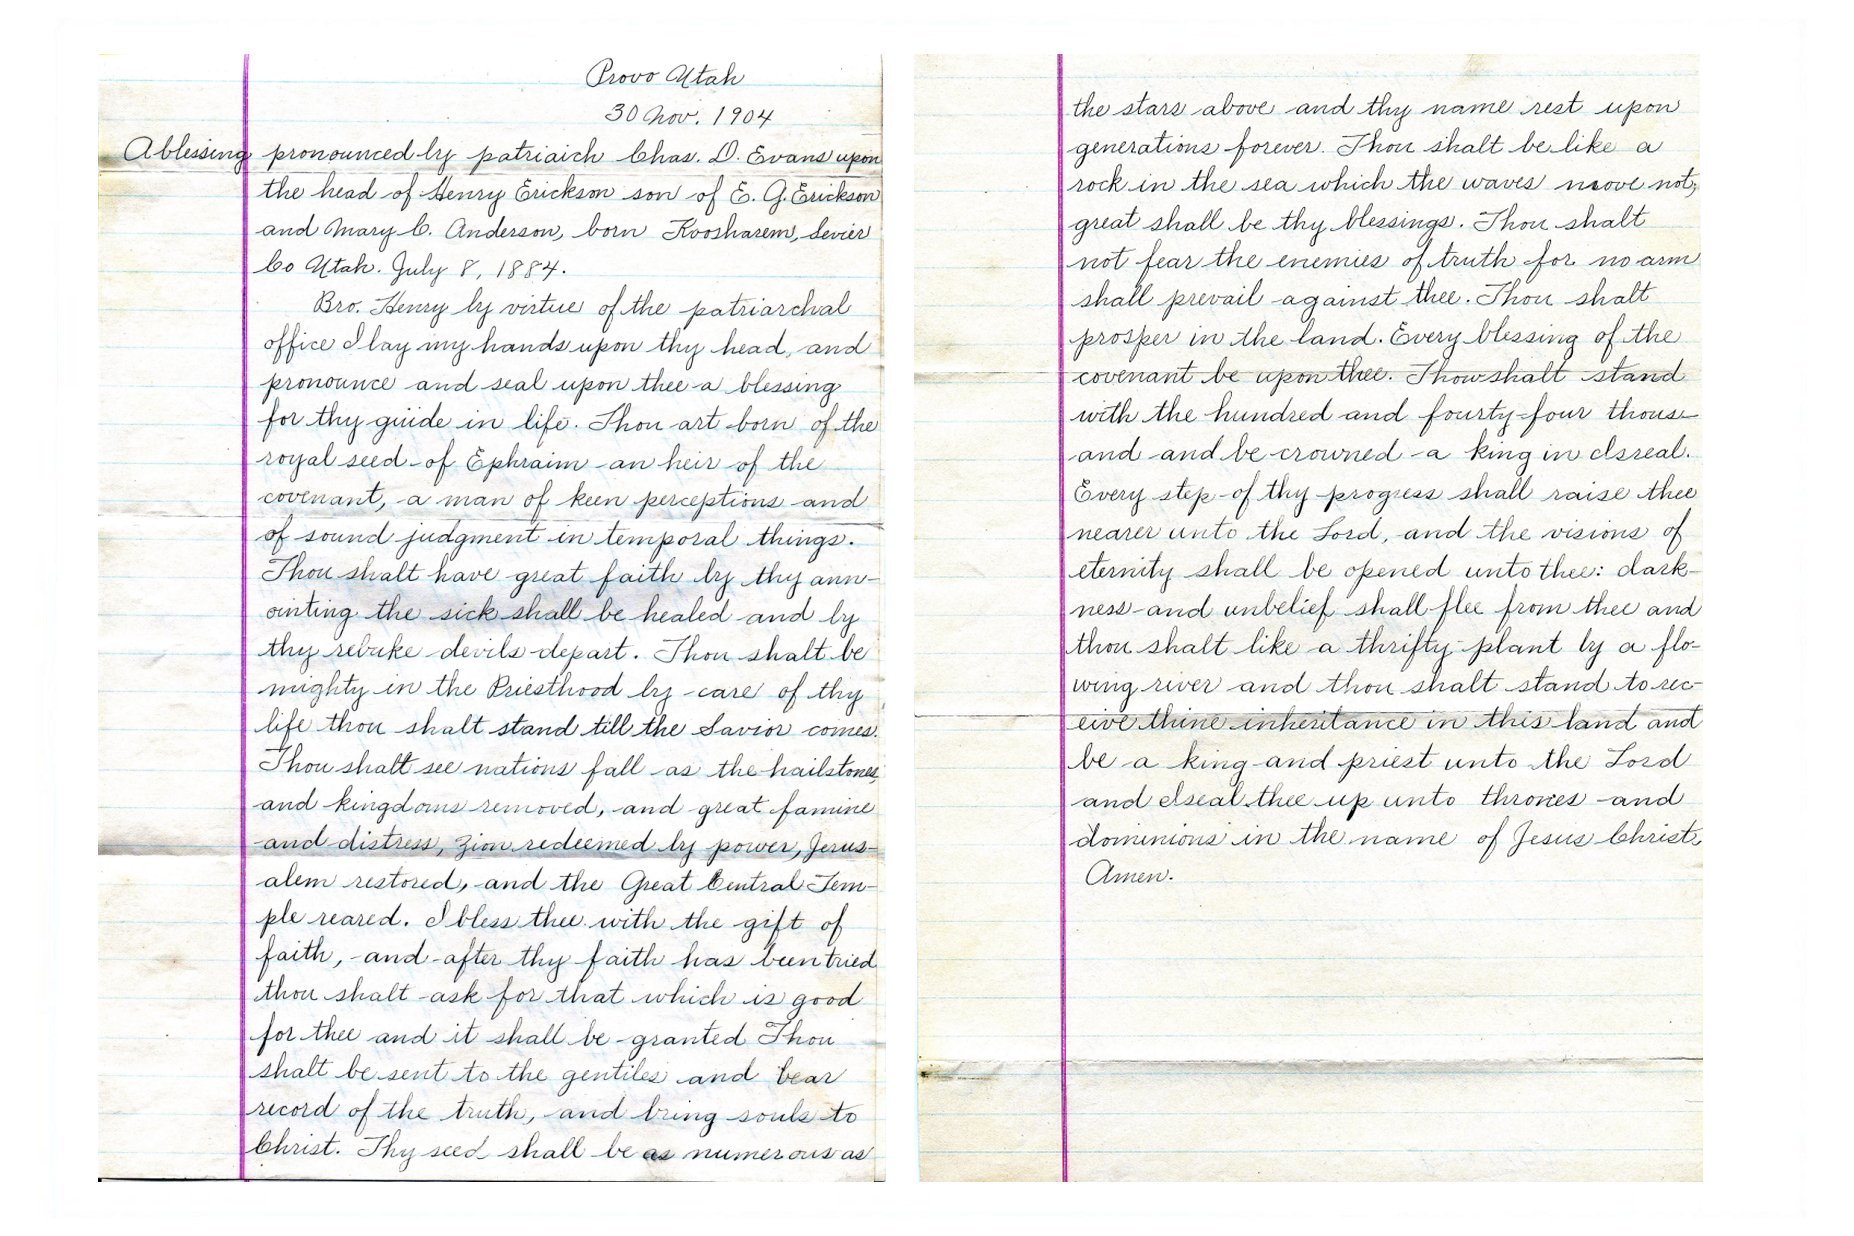 Provo Utah
30 Nov. 1904
A blessing pronounced by patriaich Chas. D. Evans upon
the head of Henry Erickson son of E. G. Erickson
and Mary C. Anderson, born Koosharem, Sevier
Co Utah. July 8, 1884.
Bro. Henry by virtue of the patriarchal
office I lay my hands upon thy head, and
pronounce and seal upon thee a blessing
for thy guide in life. Thou art born of the
royal seed of Ephraim an heir of the
covenant, a man of keen perceptions and
of sound judgment in temporal things.
Thou shalt have great faith by thy ann-
ointing the sick shall be healed and by
thy rebuke devils depart. Thou shalt be
mighty in the Priesthood by care of thy
life thou shalt stand till the Savior comes.
Thou shalt see nations fall as the hailstones,
and kingdoms removed, and great famine
and distress, Zion redeemed by power, Jerus-
alem restored, and the Great Central Tem-
ple reared. I bless thee with the gift of
faith, and after thy faith has been tried
thou shalt ask for that which is good
for thee and it shall be granted Thou
shalt be sent to the gentiles and bear
record of the truth, and bring souls to
Christ. Thy seed shall be as numerous as
the stars above and thy name rest upon
generations forever. Thou shalt be like a
rock in the sea which the waves move not,
great shall be thy blessings. Thou shalt
not fear the enemies of truth for no arm
shall prevail against thee. Thou shalt
prosper in the land. Every blessing of the
covenant be upon thee. Thou shalt stand
with the hundred and fourty-four thous-
and and be crowned a king in Isreal.
Every step of thy progress shall raise thee
nearer unto the Lord, and the visions of
eternity shall be opened unto thee: dark-
ness and unbelief shall flee from thee and
thou shalt like a thrifty plant by a flo-
wing river and thou shalt stand to rec-
eive thine inheritance in this land and
be a king and priest unto the Lord
and I seal thee up unto thrones and
dominions in the name of Jesus Christ,
Amen.